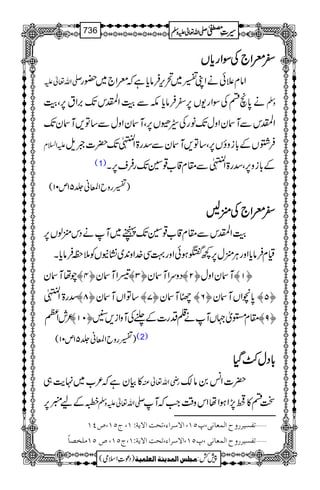 سیرتِ مصطفیٰ صلی اللہ تعالیٰ علیہ وسلم 736
سفرِ معراج کی سواریاں
امام علائی نے اپنی تفسیر میں تحریر فرمایا ہے کہ معراج میں حضور صلی اللہ تعالیٰ علیہ
وسلم نے پانچ قسم کی سواریوں پر سفر فرمایا مکہ سے بیت المقدس تک براق پر، بیت
المقدس سے آسمان اول تک نور کی سیڑھیوں پر، آسمان اول سے ساتویں آسمان تک
فرشتوں کے بازوؤں پر، ساتویں آسمان سے سدرۃ المنتہیٰ تک حضرت جبریل علیہ السلام
کے بازو پر، سدرۃ المنتہیٰ سے مقام قاب قوسین تک رفرف پر۔(1)
(تفسیر روح المعانی جلد ۱۵ ص ۱۰)
سفرِ معراج کی منزلیں
بیت المقدس سے مقام قاب قوسین تک پہنچنے میں آپ نے دس منزلوں پر
قیام فرمایا اور ہر منزل پر کچھ گفتگو ہوئی اور بہت سی خداوندی نشانیوں کو ملاحظہ فرمایا۔
﴿۱﴾ آسمان اول ﴿۲﴾ دوسرا آسمان ﴿۳﴾ تیسرا آسمان ﴿۴﴾ چوتھا آسمان
﴿۵﴾ پانچواں آسمان ﴿۶﴾ چھٹا آسمان ﴿۷﴾ ساتواں آسمان ﴿۸﴾ سدرۃ المنتہیٰ
﴿۹﴾ مقام مستویٰ جہاں آپ نے قلم قدرت کے چلنے کی آوازیں سنیں ﴿۱۰﴾ عرش اعظم
(2) (تفسیر روح المعانی جلد ۱۵ ص ۱۰)
بادل کٹ گیا
حضرت انس بن مالک رضی اللہ تعالیٰ عنہ کا بیان ہے کہ عرب میں نہایت ہی
سخت قسم کا قحط پڑا ہوا تھا اس وقت جب کہ آپ صلی اللہ تعالیٰ علیہ وسلم خطبہ کے لیے منبر پر
1.....تفسیر روح المعانی، پ۱۵، الاسراء، تحت الایة: ۱، ج۱۵، ص۱۴
2.....تفسیر روح المعانی، پ۱۵، الاسراء، تحت الایة: ۱، ج۱۵، ص ۱۵ ملخصاً
پیش کش: مجلس المدینة العلمیة (دعوتِ اسلامی)